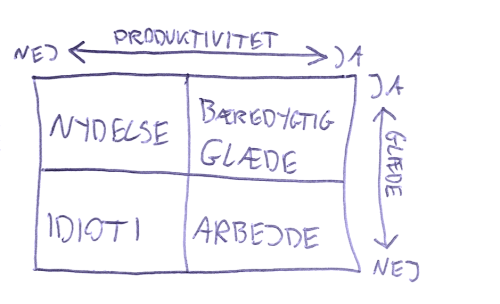 PRODUKTIVITET
NEJ JA
JA
NYDELSE
BÆREDYGTIG
GLÆDE
GLÆDE
IDIOTI
ARBEJDE
NEJ